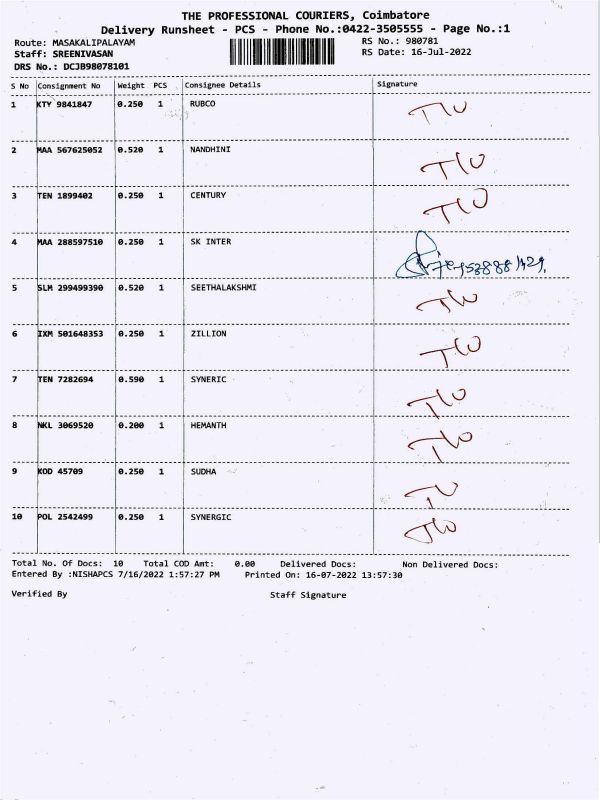 THE PROFESSIONAL COURIERS, Coimbatore
Delivery Runsheet - PCS - Phone No.:0422-3505555 - Page No.:1
Route: MASAKALIPALAYAM RS No.: 980781
Staff: SREENIVASAN RS Date: 16-Jul-2022
DRS No.: DCJB98078101
S No Consignment No Weight PCS Consignee Details Signature
1 KTY 9841847 0.250 1 RUBCO
2 MAA 567625052 0.520 1 NANDHINI
3 TEN 1899402 0.250 1 CENTURY
4 MAA 288597510 0.250 1 SK INTER
5 SLM 299499390 0.520 1 SEETHALAKSHMI
6 IXM 501648353 0.250 1 ZILLION
7 TEN 7282694 0.590 1 SYNERIC
8 NKL 3069520 0.200 1 HEMANTH
9 KOD 45709 0.250 1 SUDHA
10 POL 2542499 0.250 1 SYNERGIC
Total No. Of Docs: 10 Total COD Amt: 0.00 Delivered Docs: Non Delivered Docs:
Entered By :NISHAPCS 7/16/2022 1:57:27 PM Printed On: 16-07-2022 13:57:30
Verified By Staff Signature